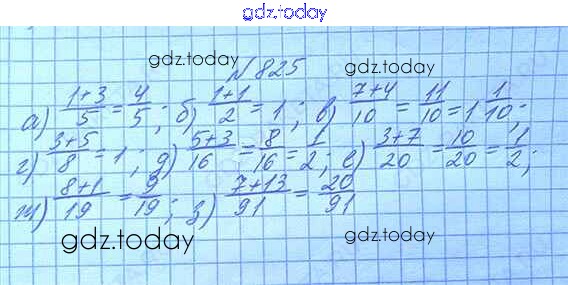 gdz.today
gdz.today №825 gdz.today
а) (1+3)/5 = 4/5; б) (1+1)/2 = 1; в) (7+4)/10 = 11/10 = 1 1/10;
г) (3+5)/8 = 1; д) (5+3)/16 = 8/16 = 1/2; е) (3+7)/20 = 10/20 = 1/2;
ж) (8+1)/19 = 9/19; з) (7+13)/91 = 20/91
gdz.today gdz.today